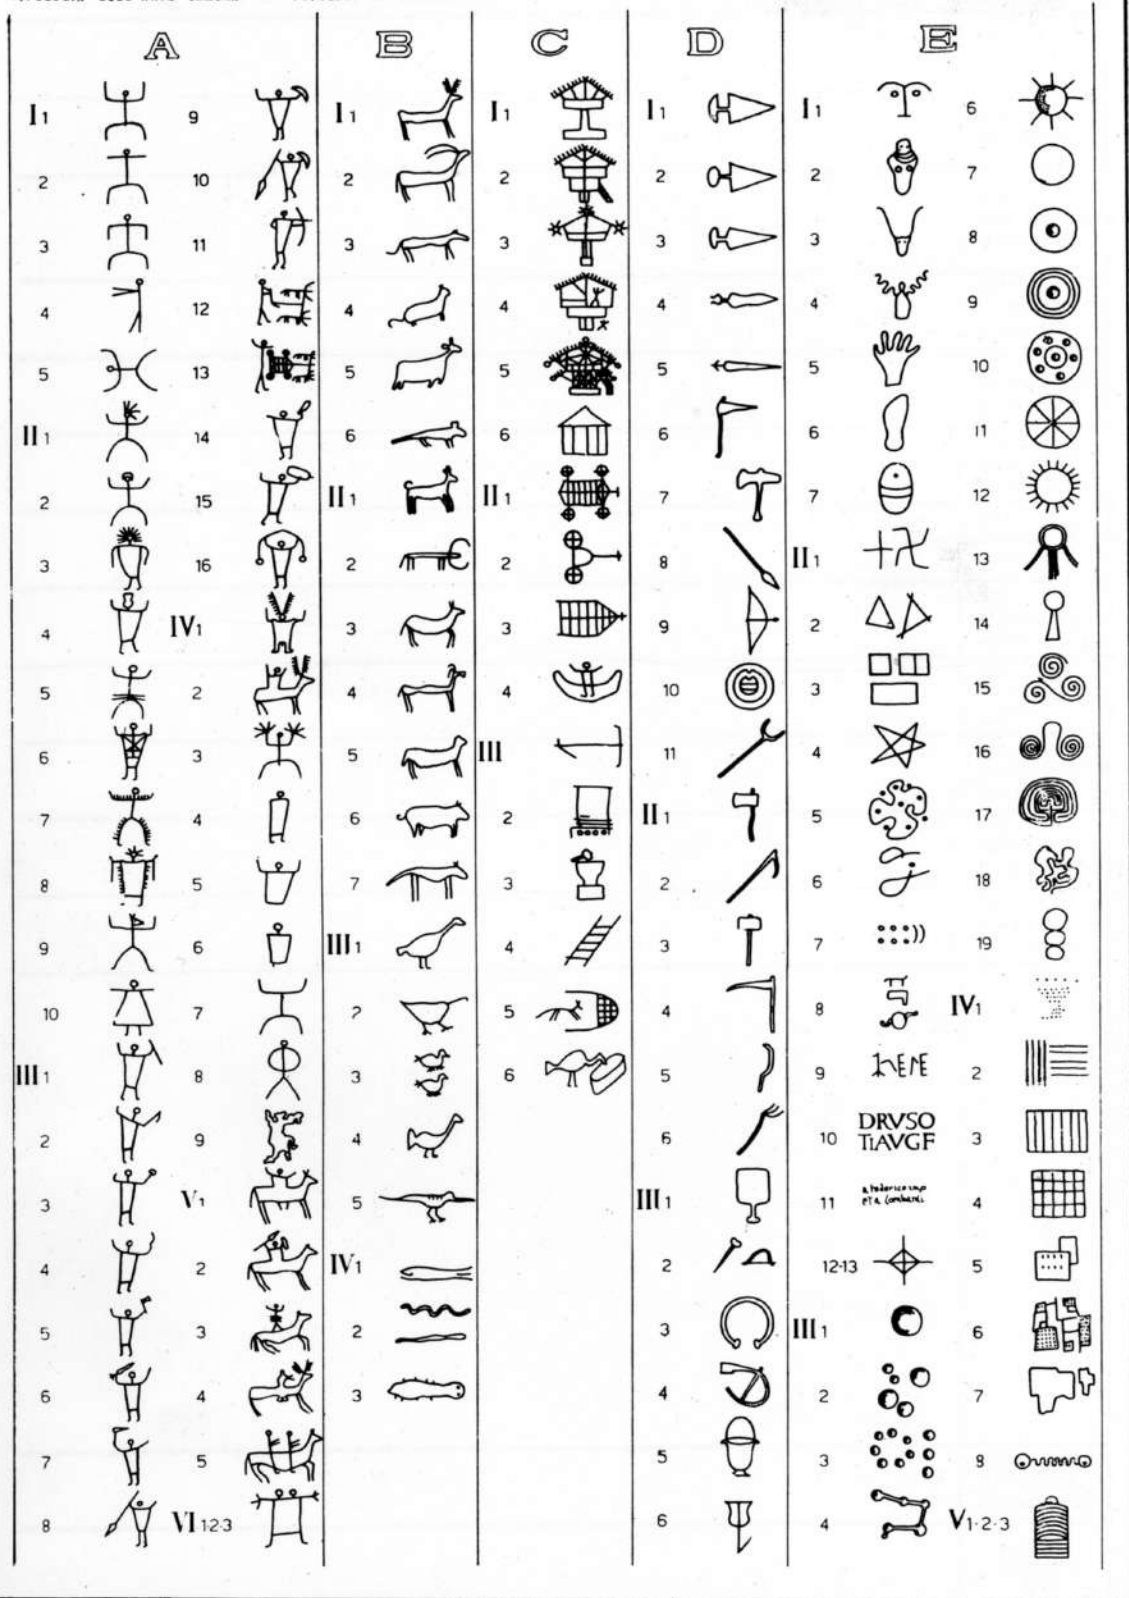 A B C D E
I 1
2
3
4
5
II 1
2
3
4
5
6
7
8
9
10
III 1
2
3
4
5
6
7
8
9
10
11
12
13
14
15
16
IV 1
2
3
4
5
6
7
8
9
V 1
2
3
4
5
VI 1-2-3
I 1
2
3
4
5
6
II 1
2
3
4
5
6
7
III 1
2
3
4
5
IV 1
2
3
I 1
2
3
4
5
6
II 1
2
3
4
III
2
3
4
5
6
I 1
2
3
4
5
6
7
8
9
10
11
II 1
2
3
4
5
6
III 1
2
3
4
5
6
I 1
2
3
4
5
6
7
II 1
2
3
4
5
6
7
8
9
10
DRVSO
TIAVGF
11
12-13
III 1
2
3
4
6
7
8
9
10
11
12
13
14
15
16
17
18
19
IV 1
2
3
4
5
6
7
8
V 1-2-3